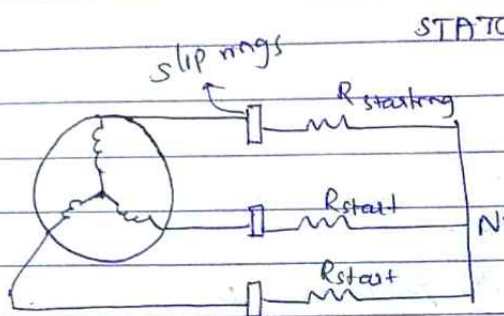 STATO
slip rings
R starting
Rstart
N
Rstart